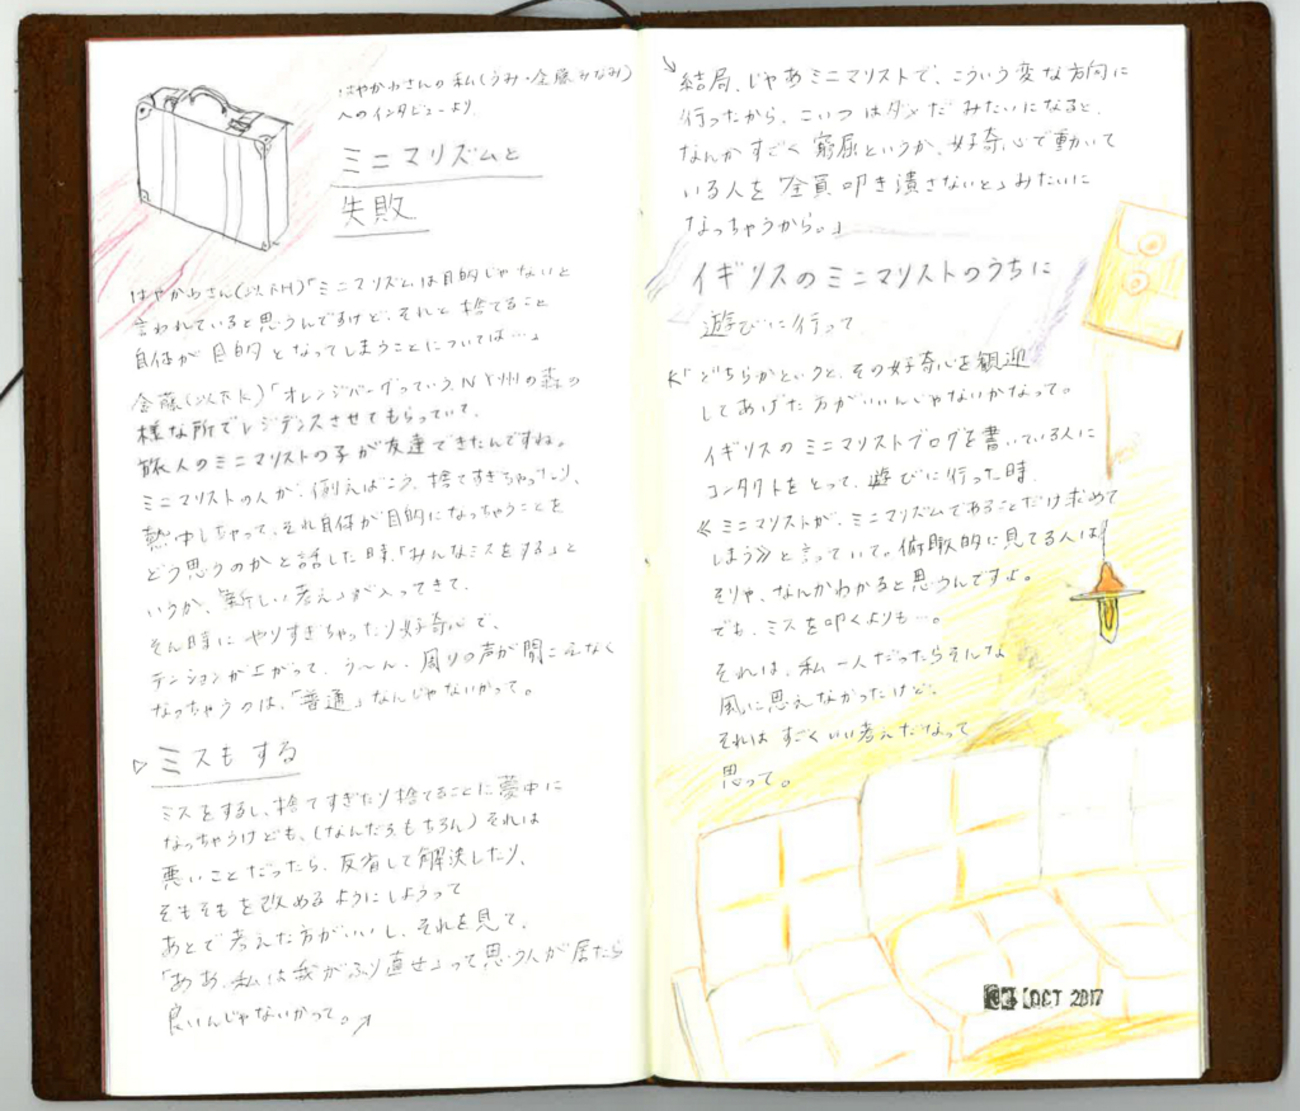 はやかわさんの私(うみ・金藤みなみ)
へのインタビューより
ミニマリズムと
失敗
はやかわさん(以下H)「ミニマリズムは目的じゃないと
言われていると思うんですけど、それと捨てること
自体が目的となってしまうことについては…」
金藤(以下K)「オレンジバーグっていう、NY州の森の
様な所でレジデンスさせてもらっていて、
旅人のミニマリストの子が友達できたんですね。
ミニマリストの人が、例えばこう、捨てすぎちゃったり、
熱中しちゃって、それ自体が目的になっちゃうことを
どう思うのかと話した時、「みんなミスをする」と
いうか、「新しい考え」が入ってきて、
そん時に やりすぎちゃったり好奇心で、
テンションが上がって、う〜ん、周りの声が聞こえなく
なっちゃうのは、「普通」なんじゃないかって。
▷ミスもする
ミスをするし、捨てすぎたり捨てることに夢中に
なっちゃうけども、(なんだろ、もちろん)それは
悪いことだったら、反省して解決したり、
そもそもを改めるようにしようって
あとで考えた方がいいし、それを見て、
「ああ、私は我がふり直せ」って思う人が居たら
良いんじゃないかって。↗
↘結局、じゃあミニマリストで、こういう変な方向に
行ったから、こいつはダメだ みたいになると、
なんかすごく窮屈というか、好奇心で動いて
いる人を「全員叩き潰さないと」みたいに
なっちゃうから。」
イギリスのミニマリストのうちに
遊びに行って
K「どちらかというと、その好奇心を歓迎
してあげた方がいいんじゃないかなって。
イギリスのミニマリストブログを書いている人に
コンタクトをとって、遊びに行った時、
《ミニマリストが、ミニマリズムであることだけ求めて
しまう》と言っていて。俯瞰的に見てる人は
そりゃ、なんかわかると思うんですよ。
でも、ミスを叩くよりも…。
それは、私一人だったらそんな
風に思えなかったけど、
それは すごくいい考えだなって
思って。
OCT 2017